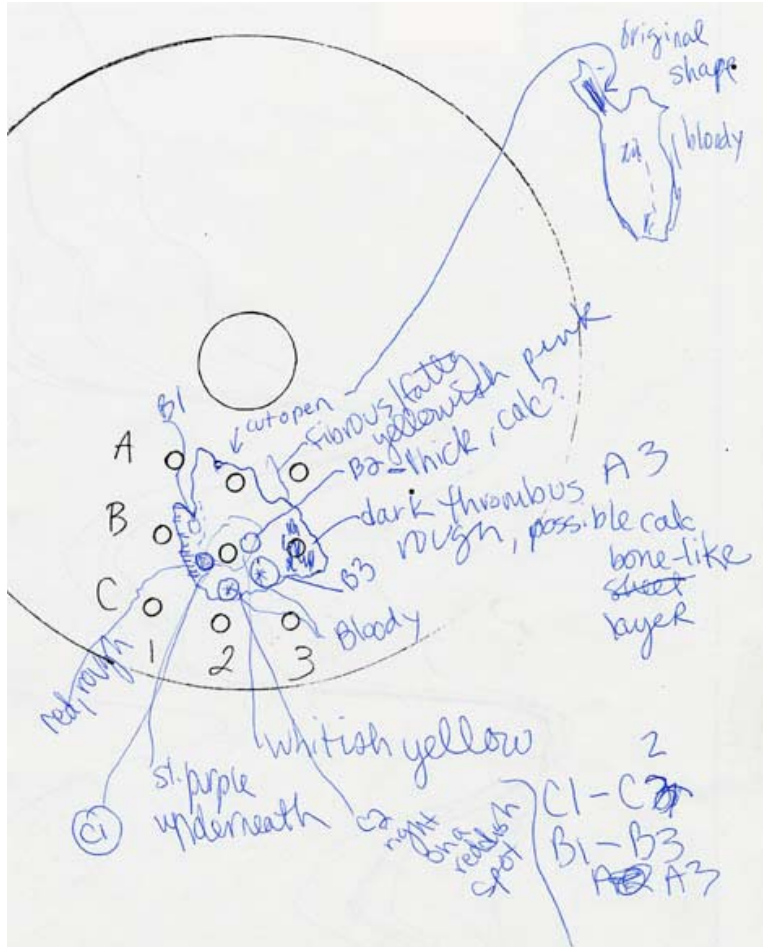 original
shape
bloody
B1
cut open
fibrous/fatty
yellowish pink
B2 - thick, calc?
A
dark thrombus A3
rough, possible calc
bone-like
sheet
layer
B
B3
C
Bloody
1
2
3
red, rough
whitish yellow
sl. purple
underneath
C1
C2
right
on a
reddish
spot
2
C1-C
B1-B3
A3